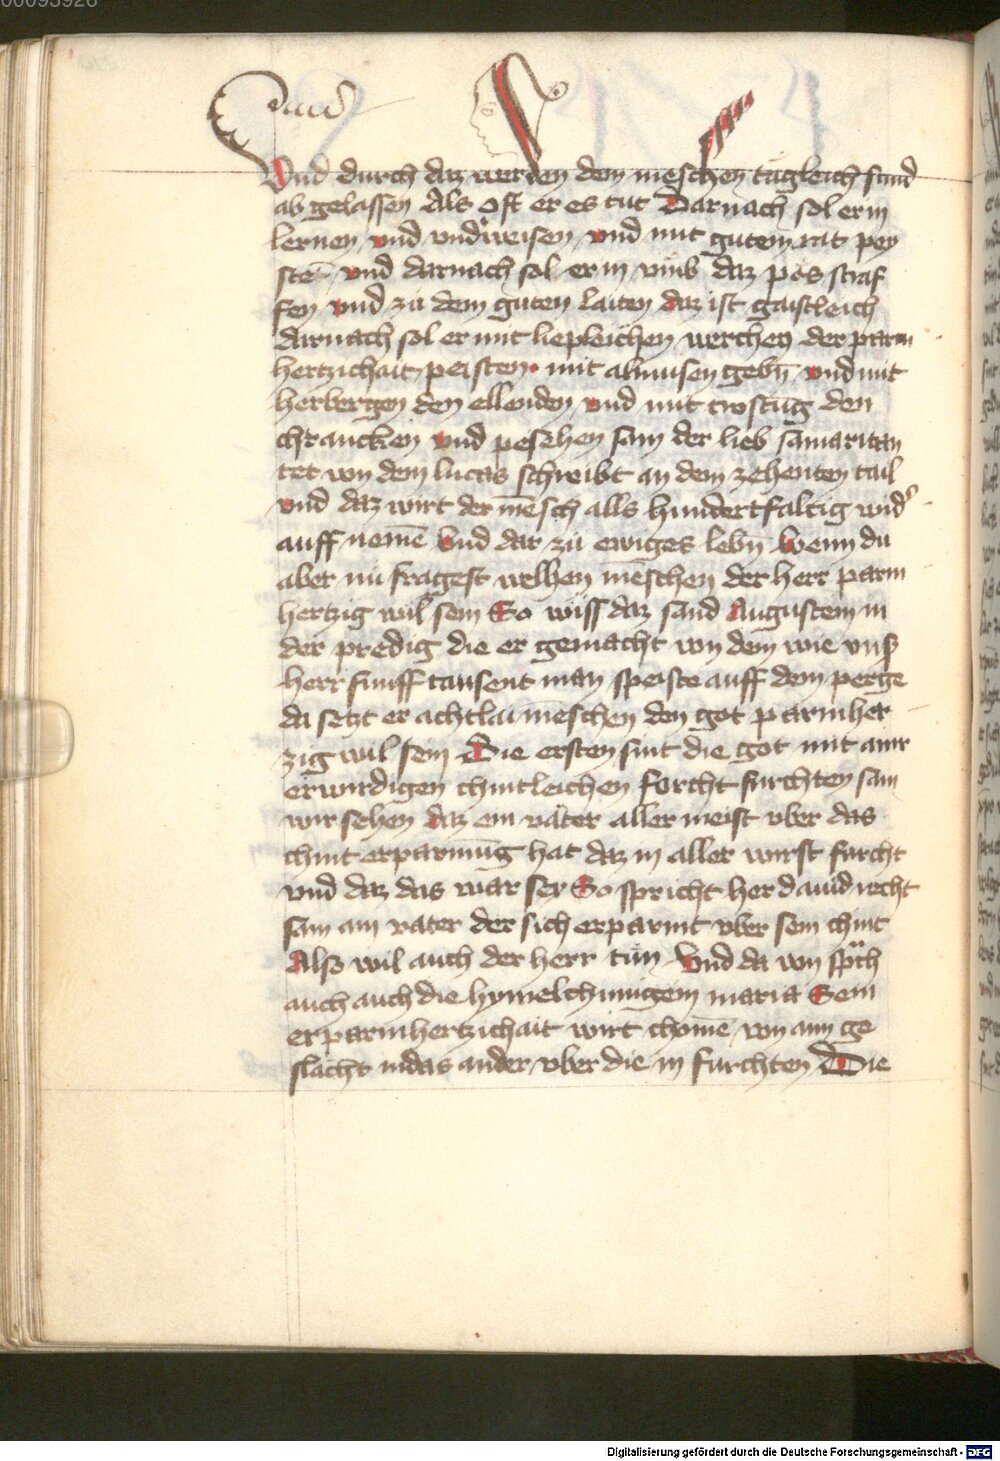 00093926
Dauid
Vnd durch daz werden dem meschen tägleich sund
ab gelassen Als oft er es tut Darnach sol er in
lernen vnd vnd'weisen vnd mit gutem rat pey
sten vnd darnach sol er in vmb daz pös straf
fen vnd zu dem guten laiten daz ist gaistleich
darnach sol er mit liepleichen werchen der parm
hertzichait peisten mit almusen gebn̄ vnd mit
herbergen den ellenden vnd mit trostūg den
chrancken vnd pesehen sam der lieb samaritan
tet von dem lucas schreibt an dem zehenten tail
vnd daz wirt der mēsch alls hundertfaltig wid'
auff nemē Vnd dar zu ewiges lebn̄ Wenn du
aber nu fragest welhen mēschen der herr parm
hertzig wil sein So wiss daz sand Augustein in
der predig die er gemacht von dem wie vnser
herr funff tausent man speiste auff dem perge
da setzt er achtlai mēschen den got parmher
zig wil sein Die ersten sint die got mit ainr
erwirdigen chintleichen forcht furchten sam
wir sehen daz ein vater aller meist vber das
chint erparmūg hat daz in aller wirst furcht
vnd daz das war sey So spricht her dauid recht
sam am vater der sich erparmt vber sein chint
Also wil auch der herr tun Vnd da von sprach
auch auch die hymelchunigein maria Sein
erparmhertzichait wirt chomē von aim ge
slächt in das ander vber die in furchten Die
Digitalisierung gefördert durch die Deutsche Forschungsgemeinschaft - DFG